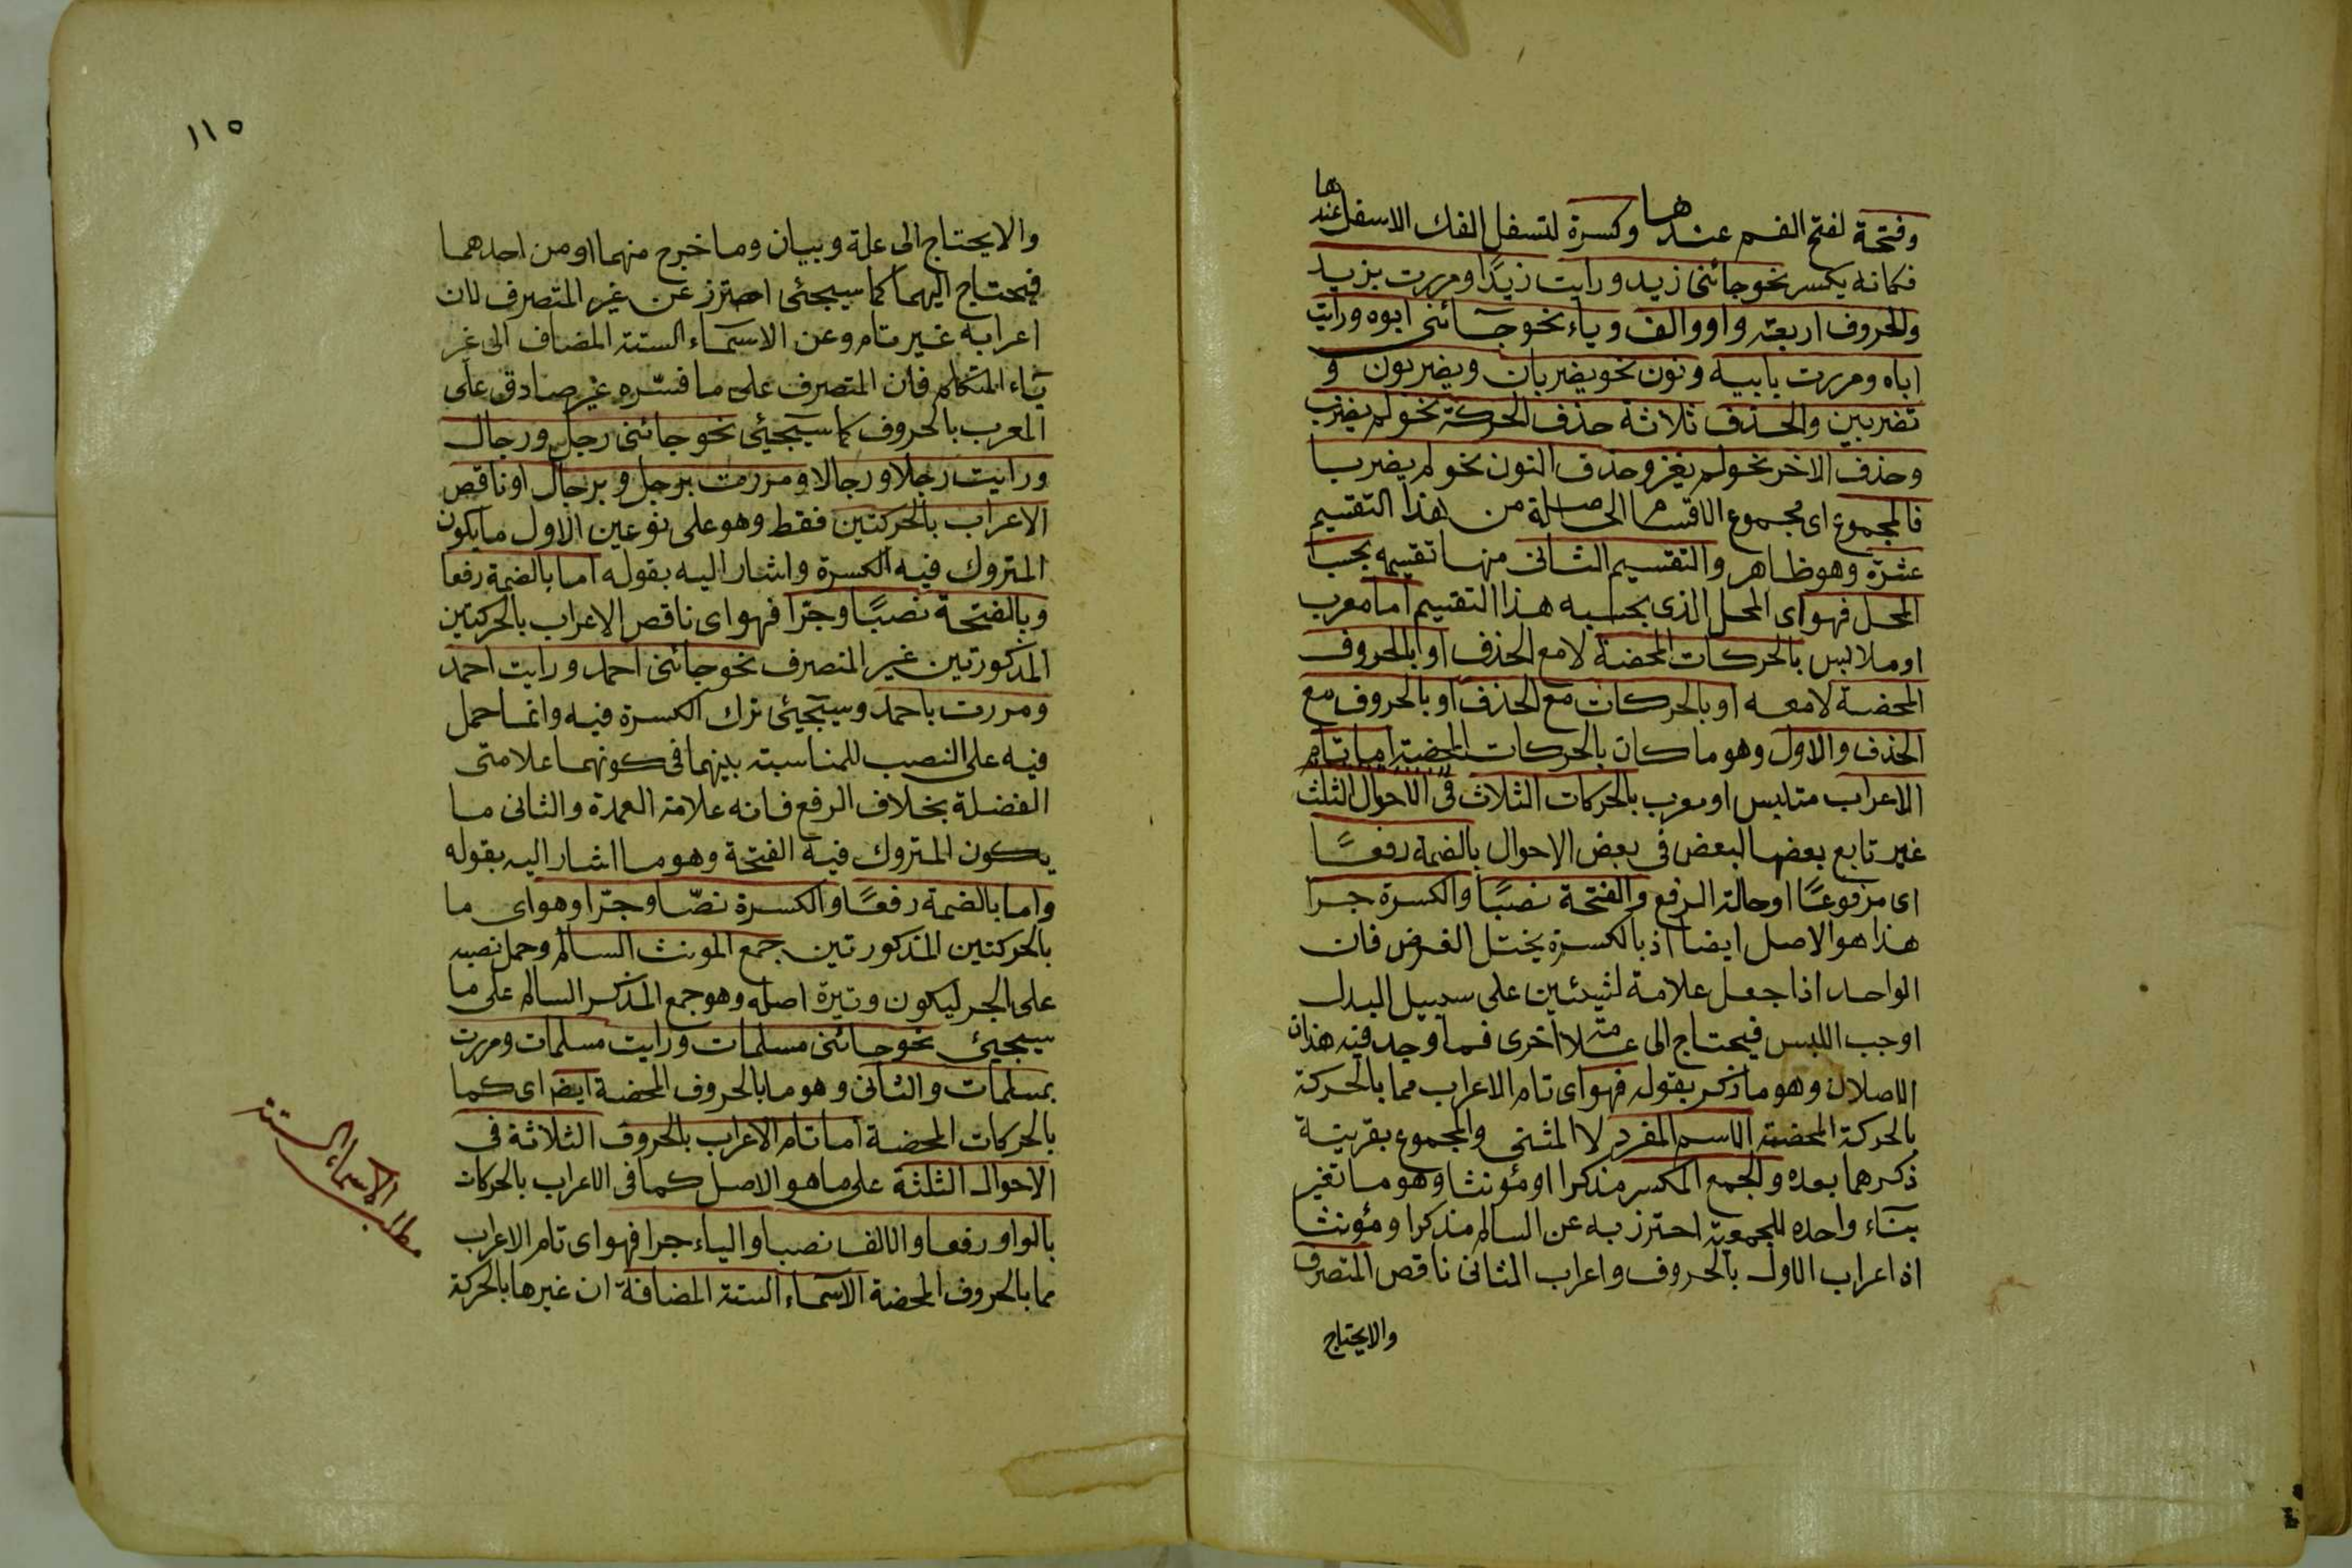 وفتحة لفتح الفم عندها وكسرة لتسفل الفك الاسفل عندها
فكانه يكسر نحو جائنى زيد ورايت زيدًا ومررت بزيد
والحروف اربعة واو والف وياء نحو جآئنى ابوه ورايت
اباه ومررت بابيه ونون نحو يضربان ويضربون و
تضربين والحذف ثلاثة حذف الحركة نحو لم يضرب
وحذف الاخر نحو لم يغز وحذف النون نحو لم يضربا
فالمجموع اى مجموع الاقسام الحاصلة من هذا التقسيم
عشرة وهو ظاهر والتقسيم الثانى منها تقسيمه بحسب
المحل فهو اى المحل الذى بحسبه هذا التقسيم اما معرب
او ملابس بالحركات المحضة لا مع الحذف او بالحروف
المحضة لا معه او بالحركات مع الحذف او بالحروف مع
الحذف والاول وهو ما كان بالحركات المحضة اما تام
الاعراب متلبس او معرب بالحركات الثلاث فى الاحوال الثلث
غير تابع بعضها لبعض فى بعض الاحوال بالضمة رفعًا
اى مرفوعًا او حالة الرفع والفتحة نصبًا والكسرة جرا
هذا هو الاصل ايضا اذ بالكسرة يختل الغرض فان
الواحد اذا جعل علامة لشيئين على سبيل البدل
اوجب اللبس فيحتاج الى علامة اخرى فما وجد فيه هذان
الاصلان وهو ما ذكر بقوله فهو اى تام الاعراب مما بالحركة
بالحركة المحضة الاسم المفرد لا المثنى والمجموع بقرينة
ذكرهما بعده والجمع المكسر مذكرا او مؤنثا وهو ما تغير
بنآء واحده للجمعية احترز به عن السالم مذكرا ومؤنثا
اذ اعراب الاول بالحروف واعراب الثانى ناقص المتصرف
والا يحتاج
١١٥
والا يحتاج الى علة وبيان وما خرج منهما او من احدهما
فيحتاج اليهما كما سيجئى احترز عن غير المتصرف لان
اعرابه غير تام وعن الاسمآء الستة المضاف الى غير
يآء المتكلم فان المتصرف على ما فسّره غير صادق على
المعرب بالحروف كما سيجيئى نحو جائنى رجل ورجال
ورايت رجلا ورجالا ومررت برجل وبرجال او ناقص
الاعراب بالحركتين فقط وهو على نوعين الاول ما يكون
المتروك فيه الكسرة واشار اليه بقوله اما بالضمة رفعا
وبالفتحة نصبًا وجرّا فهو اى ناقص الاعراب بالحركتين
المذكورتين غير المنصرف نحو جائنى احمد ورايت احمد
ومررت باحمد وسيجيئى ترك الكسرة فيه وانما حمل
فيه على النصب للمناسبة بينهما فى كونهما علامتى
الفضلة بخلاف الرفع فانه علامة العمدة والثانى ما
يكون المتروك فيه الفتحة وهو ما اشار اليه بقوله
واما بالضمة رفعًا والكسرة نصبّا وجرّا وهو اى ما
بالحركتين المذكورتين جمع المونث السالم وحمل نصبه
على الجر ليكون وتيرة اصله وهو جمع المذكر السالم على ما
سيجيئ نحو جائنى مسلمات ورايت مسلمات ومررت
بمسلمات والثانى وهو ما بالحروف المحضة ايضا اى كما
بالحركات المحضة اما تام الاعراب بالحروف الثلاثة فى
الاحوال الثلثة على ما هو الاصل كما فى الاعراب بالحركات
بالواو رفعا والالف نصبا والياء جرا فهو اى تام الاعراب
مما بالحروف المحضة الاسمآء الستة المضافة ان غيرها بالحركة
مطلب الاسماء الستة